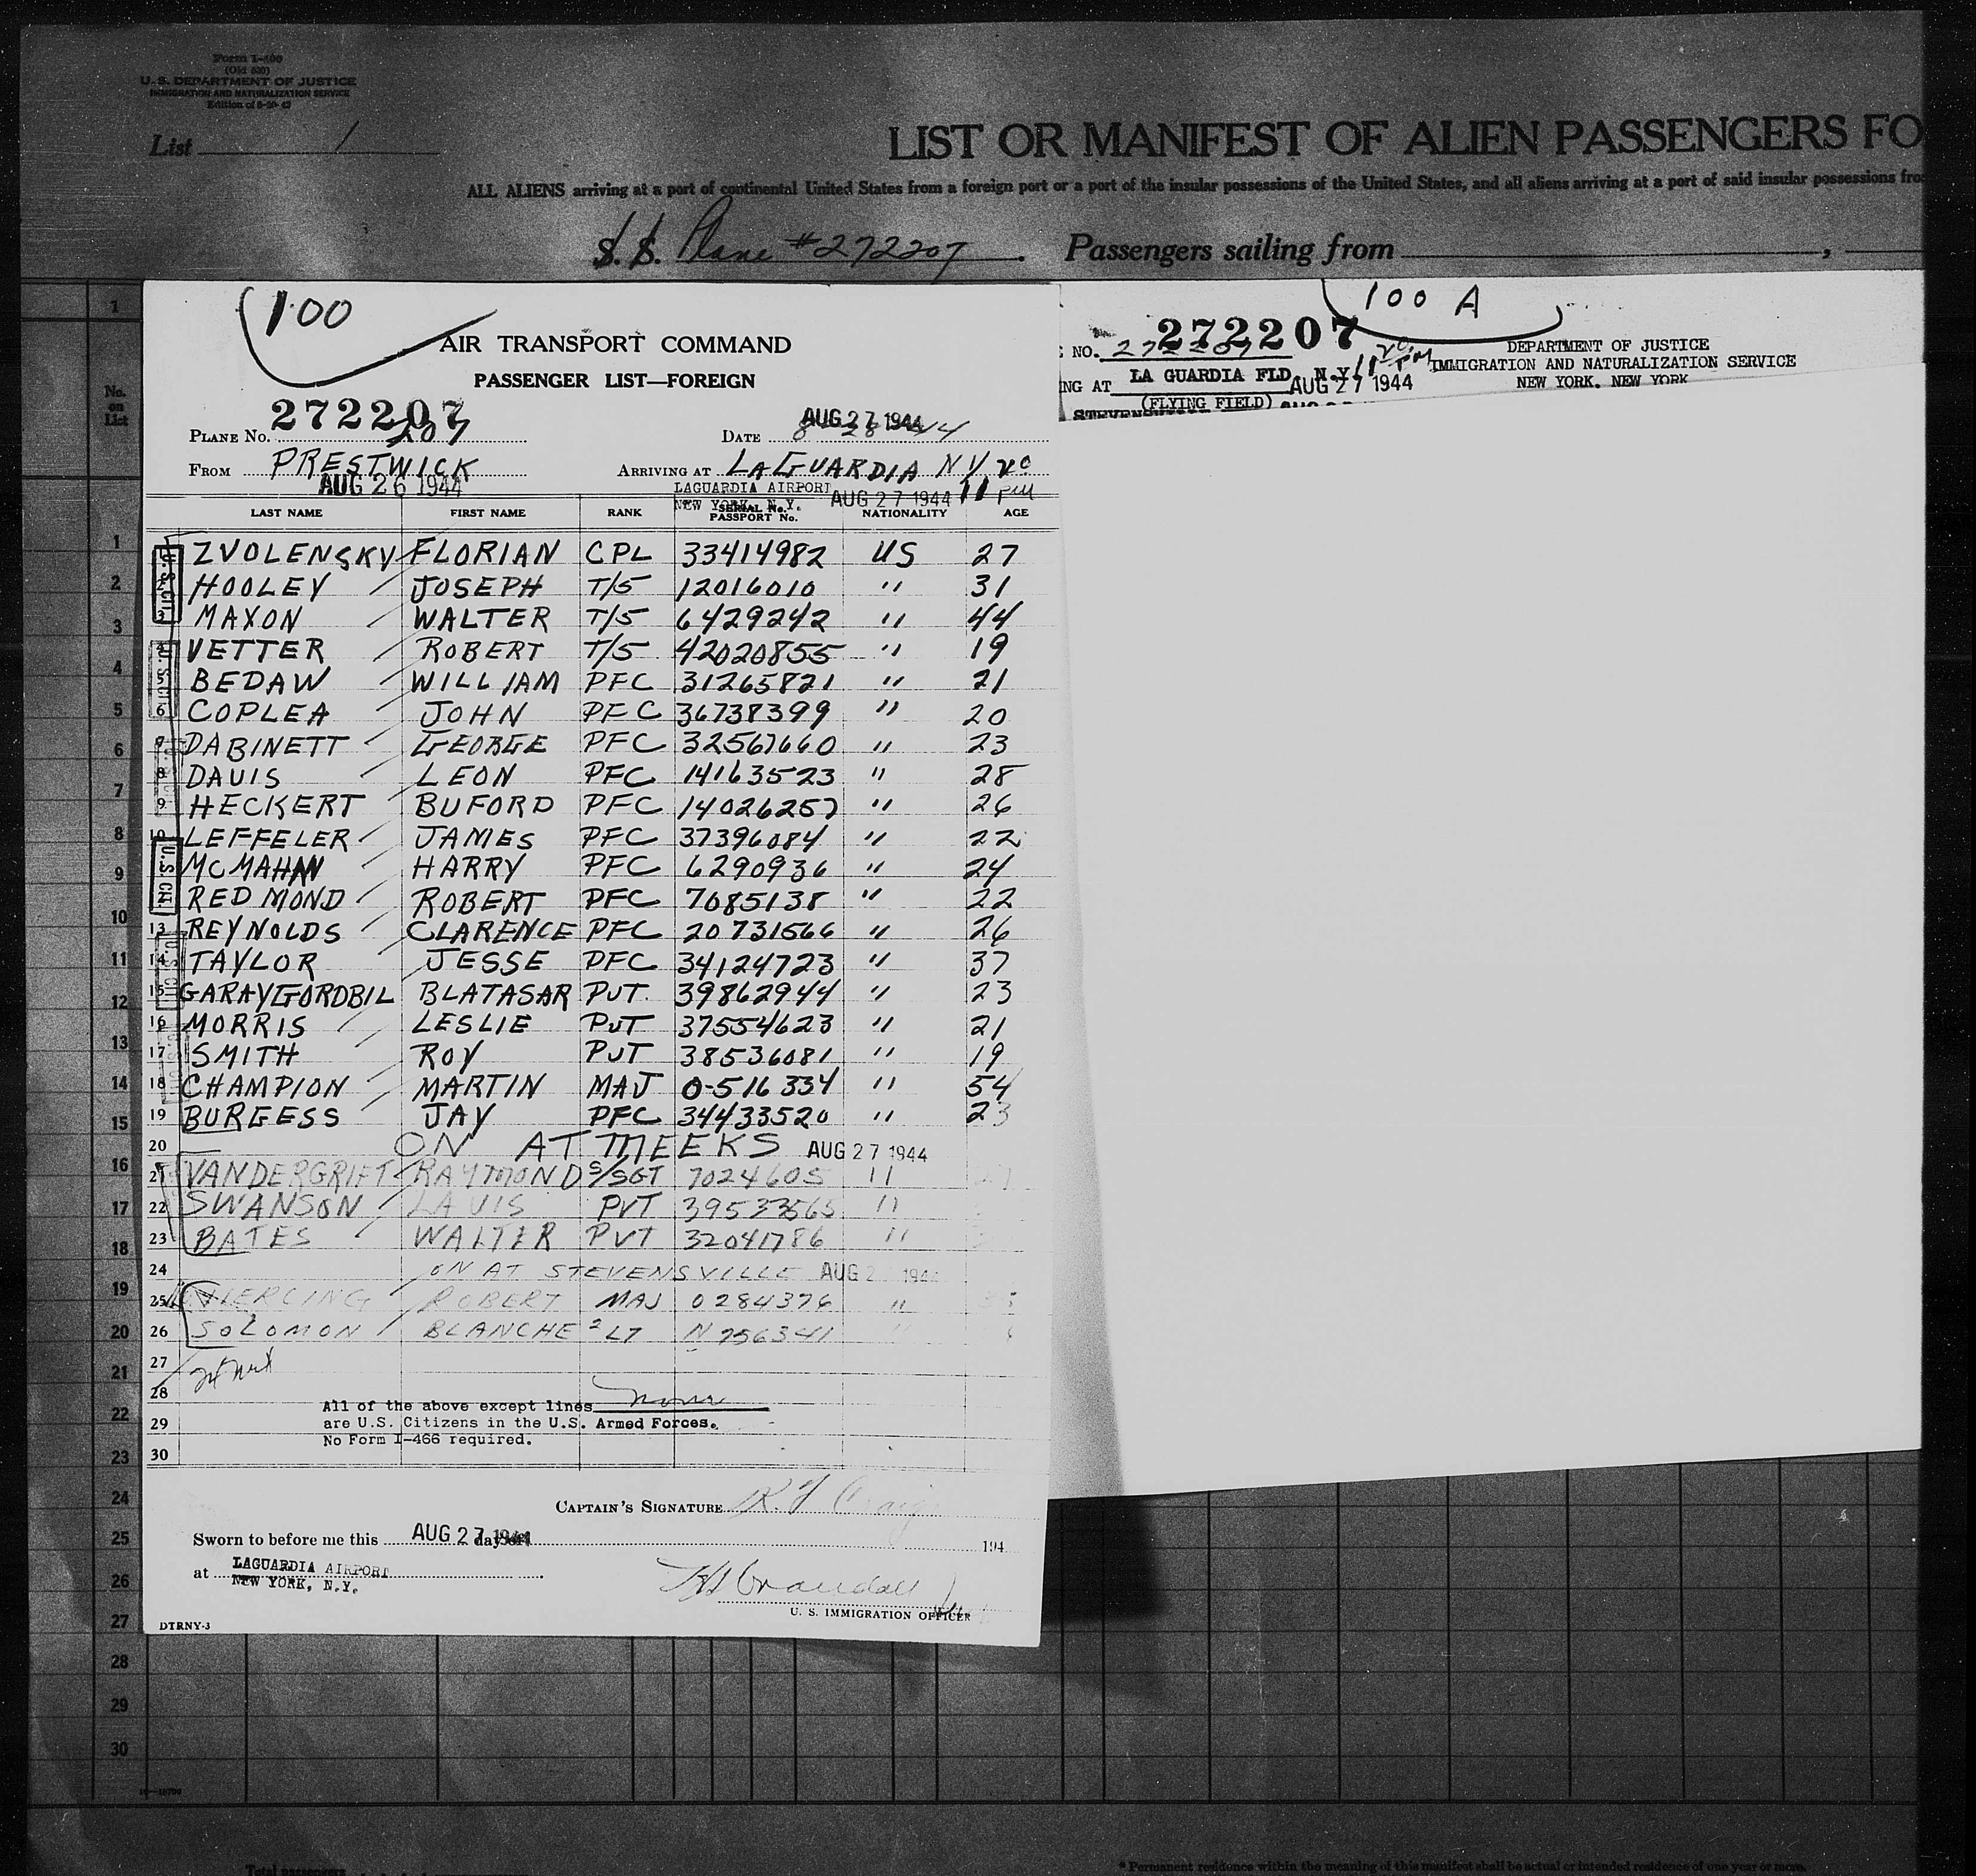 Form I-400
(Old 500)
U. S. DEPARTMENT OF JUSTICE
IMMIGRATION AND NATURALIZATION SERVICE
List 1
LIST OR MANIFEST OF ALIEN PASSENGERS FO
ALL ALIENS arriving at a port of continental United States from a foreign port or a port of the insular possessions of the United States, and all aliens arriving at a port of said insular possessions fro
S. S. Plane #272207. Passengers sailing from ,
100
AIR TRANSPORT COMMAND
PASSENGER LIST—FOREIGN
272207
PLANE No. 207 DATE AUG 27 1944
FROM PRESTWICK ARRIVING AT LAGUARDIA NY
AUG 26 1944 LAGUARDIA AIRPORT NEW YORK, N.Y. AUG 27 1944 11 20 PM
LAST NAME FIRST NAME RANK SERIAL No. PASSPORT No. NATIONALITY AGE
1 ZVOLENSKY FLORIAN CPL 33414982 US 27
2 HOOLEY JOSEPH T/5 12016010 " 31
3 MAXON WALTER T/5 6429242 " 44
4 VETTER ROBERT T/5 42020855 " 19
5 BEDAW WILLIAM PFC 31265821 " 21
6 COPLEA JOHN PFC 36738399 " 20
7 DABINETT GEORGE PFC 32567660 " 23
8 DAVIS LEON PFC 14163523 " 28
9 HECKERT BUFORD PFC 14026257 " 26
10 LEFFELER JAMES PFC 37396084 " 22
11 MCMAHN HARRY PFC 6290936 " 24
12 REDMOND ROBERT PFC 7085138 " 22
13 REYNOLDS CLARENCE PFC 20731566 " 26
14 TAYLOR JESSE PFC 34124723 " 37
15 GARAYGORDBIL BLATASAR PVT. 39862944 " 23
16 MORRIS LESLIE PVT 37554623 " 21
17 SMITH ROY PVT 38536081 " 19
18 CHAMPION MARTIN MAJ 0-516334 " 54
19 BURGESS JAY PFC 34433520 " 23
20 ON AT MEEKS AUG 27 1944
21 VANDERGRIFT RAYMOND S/SGT 7024605 "
22 SWANSON LAVIS PVT 39533565 "
23 BATES WALTER PVT 32041786 "
24 ON AT STEVENSVILLE AUG 2 194
25 ROBERT MAJ 0284376 "
26 SOLOMON BLANCHE 2 LT N 756341 "
27
28
29
30
All of the above except lines none
are U.S. Citizens in the U.S. Armed Forces.
No Form I-466 required.
CAPTAIN'S SIGNATURE R. J Craig
Sworn to before me this AUG 27 1944 day of 194
at LAGUARDIA AIRPORT
NEW YORK, N.Y.
U. S. IMMIGRATION OFFICER
DTRNY-3
100 A
272207
NO. 272207
NG AT LA GUARDIA FLD, N.Y. 11 20 PM AUG 27 1944
(FLYING FIELD)
DEPARTMENT OF JUSTICE
IMMIGRATION AND NATURALIZATION SERVICE
NEW YORK. NEW YORK
No. on List
1
2
3
4
5
6
7
8
9
10
11
12
13
14
15
16
17
18
19
20
21
22
23
24
25
26
27
28
29
30
Total passengers
* Permanent residence within the meaning of this manifest shall be actual or intended residence of one year or more.